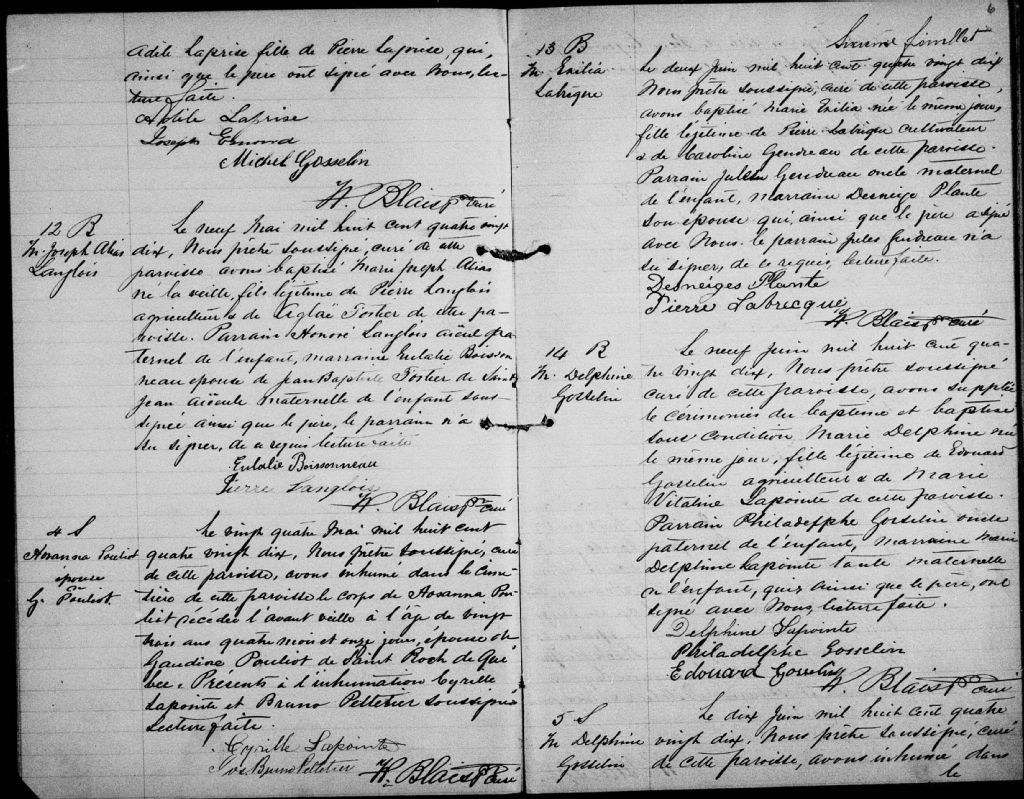 Adèle Laprise fille de Pierre Laprise qui,
ainsi que le père ont signé avec Nous, lec-
ture faite.
Adèle Laprise
Joseph Emond
Michel Gosselin
H. Blais ptre curé
12 B
M. Joseph Alias
Langlois
Le neuf Mai mil huit cent quatre vingt
dix, Nous prêtre soussigné, curé de cette
paroisse avons baptisé Marie Joseph Alias
né la veille, fils légitime de Pierre Langlois
agriculteur & de Aglaé Fortier de cette pa-
roisse. Parrain Honoré Langlois aïeul pa-
ternel de l'enfant, marraine Eulalie Boisson-
neau épouse de Jean Baptiste Fortier de Saint
Jean aïeule maternelle de l'enfant sous-
signée ainsi que le père, le parrain n'a
su signer, de ce requis lecture faite
Eulalie Boissonneau
Pierre Langlois
H. Blais ptre curé
4 S
Hosanna Pouliot
épouse
G. Pouliot.
Le vingt quatre Mai mil huit cent
quatre vingt dix, Nous prêtre soussigné, curé
de cette paroisse, avons inhumé dans le cime-
tière de cette paroisse le corps de Hosanna Pou-
liot décédée l'avant veille à l'âge de vingt
trois ans quatre mois et onze jours, épouse de
Gaudiose Pouliot de Saint Roch de Qué-
bec. Présents à l'inhumation Cyrille
Lapointe et Bruno Pelletier soussignés
Lecture faite.
Cyrille Lapointe
Jos Bruno Pelletier
H. Blais ptre curé
6
Sixième feuillet
13 B
M. Exilia
Labrèque
Le deux Juin mil huit cent quatre vingt dix
Nous prêtre soussigné, curé de cette paroisse,
avons baptisé Marie Exilia née le même jour,
fille légitime de Pierre Labrèque cultivateur
& de Caroline Gendreau de cette paroisse.
Parrain Jules Gendreau oncle maternel
de l'enfant, marraine Desneige Plante
son épouse qui, ainsi que le père a signé
avec Nous. le parrain Jules Gendreau n'a
su signer, de ce requis, lecture faite.
Desneiges Plante
Pierre Labrecque
H. Blais ptre curé
14 B
M. Delphine
Gosselin
Le neuf Juin mil huit cent qua-
tre vingt dix, Nous prêtre soussigné
curé de cette paroisse, avons supplée
le cérémonies du baptême et baptisé
sous condition, Marie Delphine née
le même jour, fille légitime de Edouard
Gosselin agriculteur & de Marie
Vitaline Lapointe de cette paroisse.
Parrain Philadelphe Gosselin oncle
paternel de l'enfant, Marraine Marie
Delphine Lapointe tante maternelle
de l'enfant, qui, ainsi que le père, ont
signé avec Nous, lecture faite.
Delphine Lapointe
Philadelphe Gosselin
Edouard Gosselin
H. Blais ptre curé
5 S
M. Delphine
Gosselin
Le dix Juin mil huit cent quatre
vingt dix, Nous prêtre soussigné, curé
de cette paroisse, avons inhumé dans
le